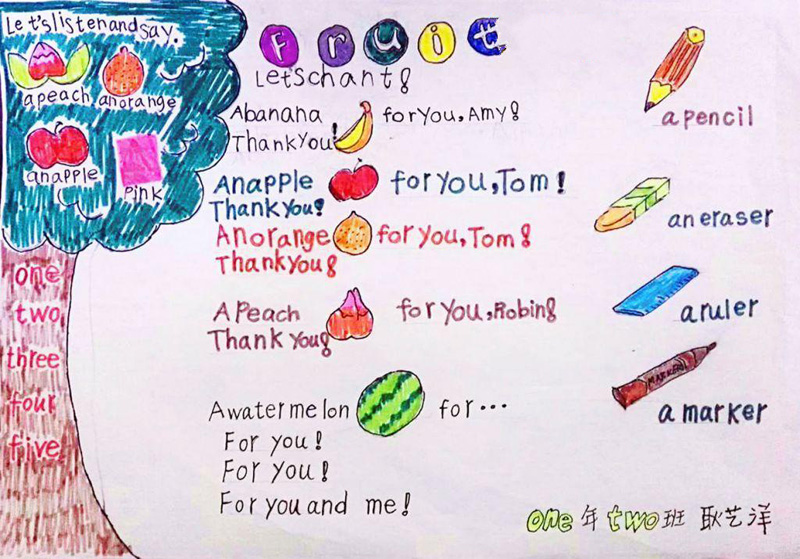 Let's listen and say.
a peach an orange
an apple
pink
one
two
three
four
five
Fruit
Let's chant!
A banana for you, Amy!
Thank you!
An apple for you, Tom!
Thank you!
An orange for you, Tom!
Thank you!
A Peach for you, Robin!
Thank you!
A watermelon for...
For you!
For you!
For you and me!
a pencil
an eraser
a ruler
MARKER
a marker
one年two班 耿艺洋